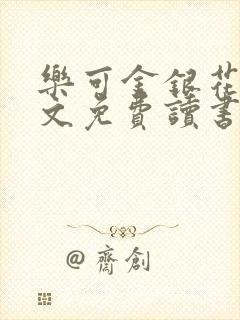 樂可金銀花
文免費讀書
@齋創